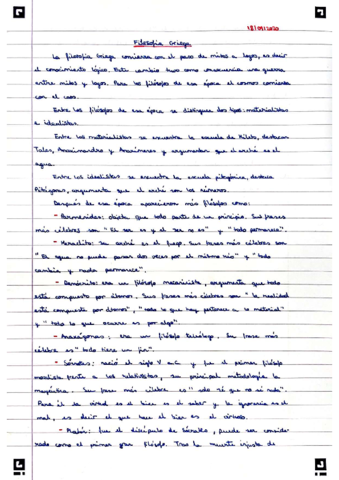 18/09/2020
Filosofía Griega
La filosofía Griega comienza con el paso de mitos a logos, es decir
el conocimiento lógico. Este cambio tuvo como consecuencia una guerra
entre mitos y logos. Para los filósofos de esa época el cosmos comienza
con el caos.
Entre los filósofos de esa época se distinguen dos tipos: materialistas
e idealistas.
Entre los materialistas se encuentra la escuela de Mileto, destacan
Tales, Anaximandro y Anaxímenes y argumentan que el arché es el
agua.
Entre los idealistas se encuentra la escuela pitagórica, destaca
Pitágoras, argumenta que el arché son los números.
Después de esa época aparecieron más filósofos como:
- Parménides: objeta que todo parte de un principio. Sus frases
más célebres son "El ser es y el ser no es" y "todo permanece".
- Heráclito: su arché es el fuego. Sus frases más célebres son
"El agua no puede pasar dos veces por el mismo río" y "todo
cambia y nada permanece".
- Demócrito: era un filósofo materialista, argumenta que todo
está compuesto por átomos. Sus frases más célebres son "la realidad
está compuesta por átomos", "todo lo que hay pertenece a lo material"
y "todo lo que ocurre es por algo".
- Anaxágoras: era un filósofo teleólogo. Su frase más
célebre es "todo tiene un fin".
- Sócrates: nació el siglo V a.C y fue el primer filósofo
moralista frente a los relativistas, su principal metodología la
mayéutica. Su frase más célebre es "solo sé que no sé nada".
Para él la virtud es el bien es el saber y la ignorancia es el
mal, es decir el que hace el bien es el virtuoso.
- Platón: fue el discípulo de Sócrates, puede ser conside-
rado como el primer gran filósofo. Tras la muerte injusta de